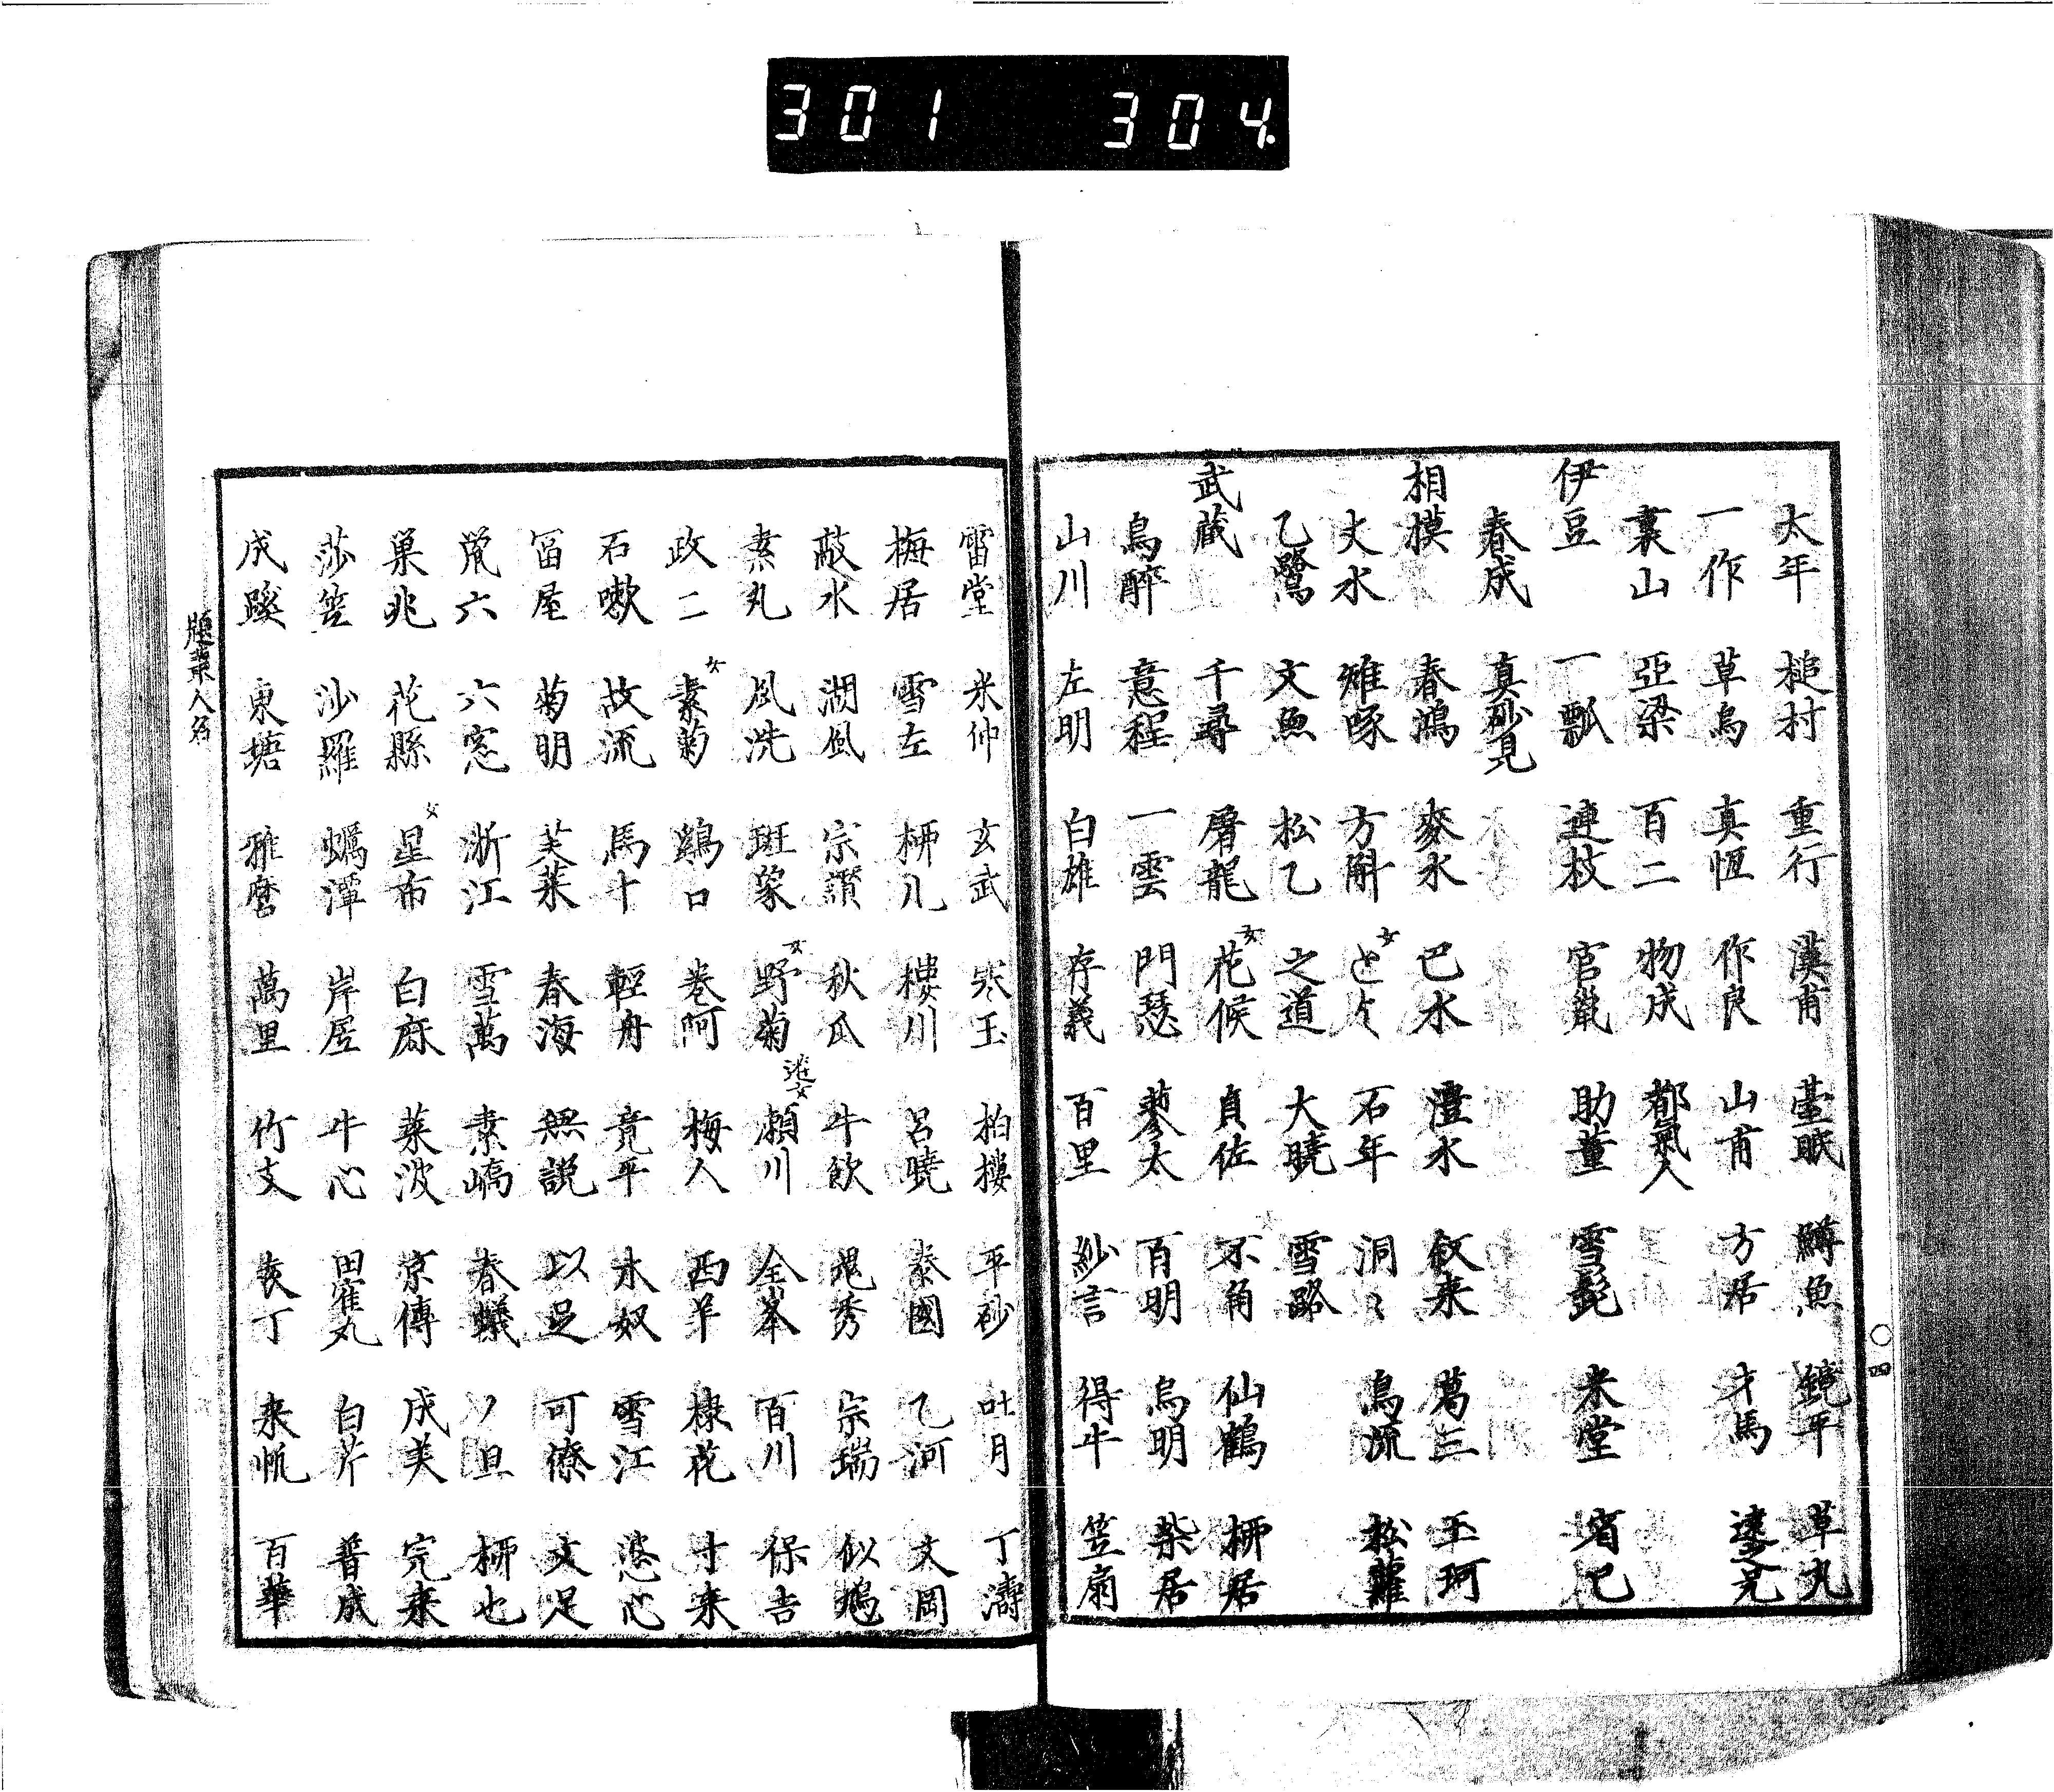 301 304
太年 槌村 重行 漢甫 臺眠 鱒魚 鏡平 草丸
一作 草烏 真恆 作良 山甫 方居 才馬 逮兄
裏山 亞梁 百二 物成 都氣人
伊豆 一瓢 連枝 官鼠 助董 雪髭 米堂 省巳
春成 真砂見
相模 春鴻 麥水 巴水 澧水 叙来 葛三 玉珂
丈水 雉啄 方斛 石年 洞〻 鳥流 松蘿
乙鷺 文魚 松乙 之道 大曉 雪路
武藏 千尋 屠龍 女花候 貞佐 不角 仙鶴 柳居
鳥醉 意程 一雲 門瑟 蓼太 百明 烏明 柴居
山川 左明 白雄 存義 百里 紗言 得牛 笠扇
四
雷堂 米仲 玄武 寒玉 柏樓 平砂 吐月 丁濤
梅居 雪左 柳几 樓川 呂曉 秦國 乙河 文岡
敲水 湖風 宗讚 秋瓜 牛飲 晁秀 宗瑞 似鳩
素丸 風洗 斑象 女野菊 遊女瀬川 全峯 百川 保吉
政二 女素菊 鷄口 巻阿 梅人 西羊 棣花 寸来
石嗽 故流 馬十 輕舟 竟平 木奴 雪江 恣心
冨屋 菊明 芙莱 春海 無説 以足 可僚 文足
蕉六 六窓 浙江 雪萬 素嶠 春蟻 〃且 柳也
巣兆 花縣 女星布 白麻 菜波 京傳 成美 完来
莎笠 沙羅 蠣潭 岸居 牛心 田寉丸 白芹 普成
成蹊 東塘 雅麿 萬里 竹支 長丁 来帆 百華
題叢人名